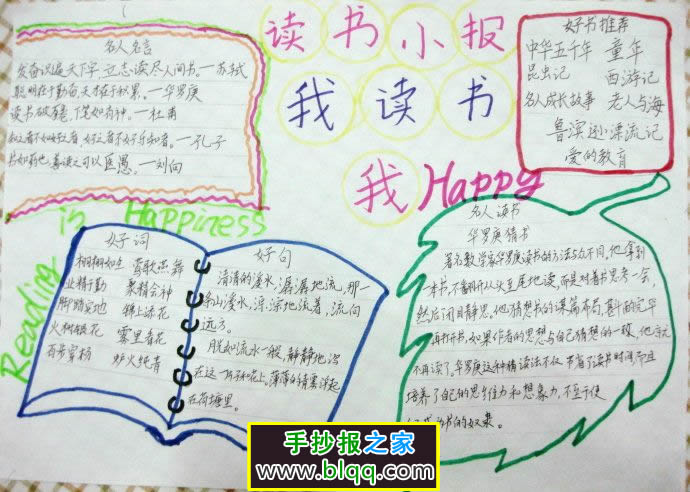 读书小报
我读书
我Happy
名人名言
发奋识遍天下字,立志读尽人间书。—苏轼
聪明在于勤奋,天才在于积累。—华罗庚
读书破万卷,下笔如有神。—杜甫
知之者不如好之者,好之者不如乐知者。—孔子
书如药也,善读之可以医愚。—刘向
好书推荐
中华五千年 童年
昆虫记 西游记
名人成长故事 老人与海
鲁滨逊漂流记
爱的教育
Reading is Happiness
好词
栩栩如生 莺歌燕舞
业精于勤 聚精会神
脚踏实地 锦上添花
火树银花 雾里看花
百步穿杨 炉火纯青
好句
清清的溪水,潺潺地流,那一
山溪水,淙淙地流着,流向
远方。
月光如流水一般,静静地泻
在这一片叶子和花上。薄薄的青雾浮起
在荷塘里。
名人读书
华罗庚猜书
著名数学家华罗庚读书的方法与众不同,他拿到
一本书,不翻开从头至尾地读,而是对着书思考一会,
然后闭目静思,他猜想书的谋篇布局,斟酌完毕
再打开书,如果作者的思想与自己猜想的一致,他
不再读了,华罗庚这种猜读法不仅节省了读书时间而且
培养了自己的思维力和想象力,不至于使
成为书的奴隶。
手抄报之家
www.blqq.com